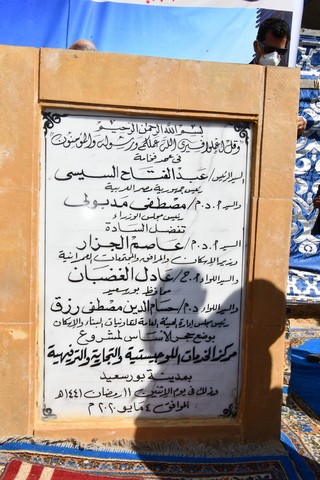 بسم الله الرحمن الرحيم
وقل اعملوا فسيرى الله عملكم ورسوله والمؤمنون
فى عهد فخامة
السيد الرئيس/ عبد الفتاح السيسى
رئيس جمهورية مصر العربية
والسيد أ.د.م/ مصطفى مدبولى
رئيس مجلس الوزراء
تفضل السادة
السيد أ.د.م/ عاصم الجزار
وزير الإسكان والمرافق والمجتمعات العمرانية
والسيد اللواء أ.ح/ عادل الغضبان
محافظ بورسعيد
والسيد اللواء د.م/ حسام الدين مصطفى رزق
رئيس مجلس إدارة الهيئة العامة لتعاونيات البناء والإسكان
بوضع حجر الأساس لمشروع
مركز الخدمات اللوجيستية والتجارية والترفيهية
بمدينة بورسعيد
وذلك في يوم الإثنين ١١ رمضان ١٤٤١هـ
الموافق ٤ مايو ٢٠٢٠م